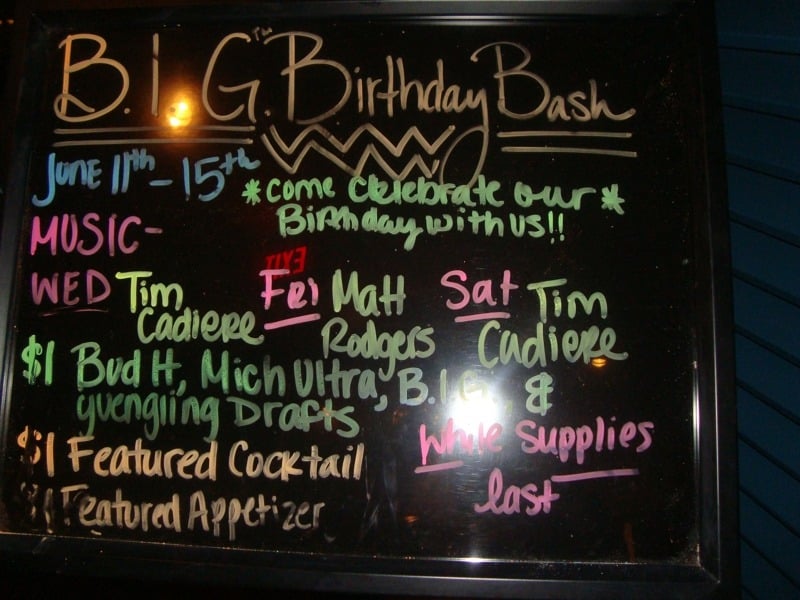 B.I.G.™ Birthday Bash
June 11th - 15th
*Come Celebrate our*
Birthday with us!!
MUSIC-
EXIT
WED Tim Cadiere Fri Matt Rodgers Sat Tim Cadiere
$1 Bud H, Mich Ultra, B.I.G., &
yuengling Drafts
$1 Featured Cocktail
$1 Featured Appetizer
While Supplies
last